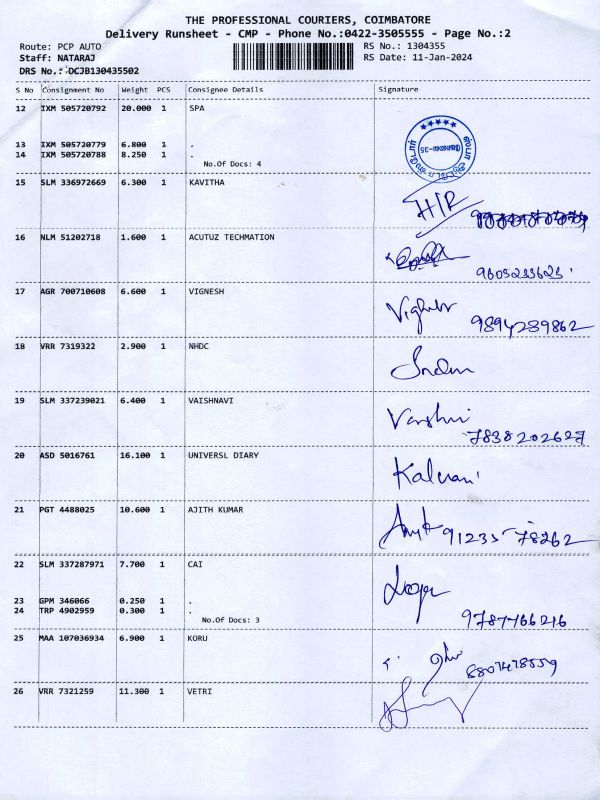 THE PROFESSIONAL COURIERS, COIMBATORE
Delivery Runsheet - CMP - Phone No.:0422-3505555 - Page No.:2
Route: PCP AUTO
Staff: NATARAJ
DRS No.: DCJB130435502
RS No.: 1304355
RS Date: 11-Jan-2024
S No Consignment No Weight PCS Consignee Details Signature
12 IXM 505720792 20.000 1 SPA
13 IXM 505720779 6.800 1 .
14 IXM 505720788 8.250 1 .
No.Of Docs: 4
15 SLM 336972669 6.300 1 KAVITHA
H/R
16 NLM 51202718 1.600 1 ACUTUZ TECHMATION
17 AGR 700710608 6.600 1 VIGNESH
9894239862
18 VRR 7319322 2.900 1 NHDC
19 SLM 337239021 6.400 1 VAISHNAVI
7838202627
20 ASD 5016761 16.100 1 UNIVERSL DIARY
Kalvani
21 PGT 4488025 10.600 1 AJITH KUMAR
91235 78262
22 SLM 337287971 7.700 1 CAI
23 GPM 346066 0.250 1 .
24 TRP 4902959 0.300 1 .
No.Of Docs: 3
9787766216
25 MAA 107036934 6.900 1 KORU
8807478559
26 VRR 7321259 11.300 1 VETRI